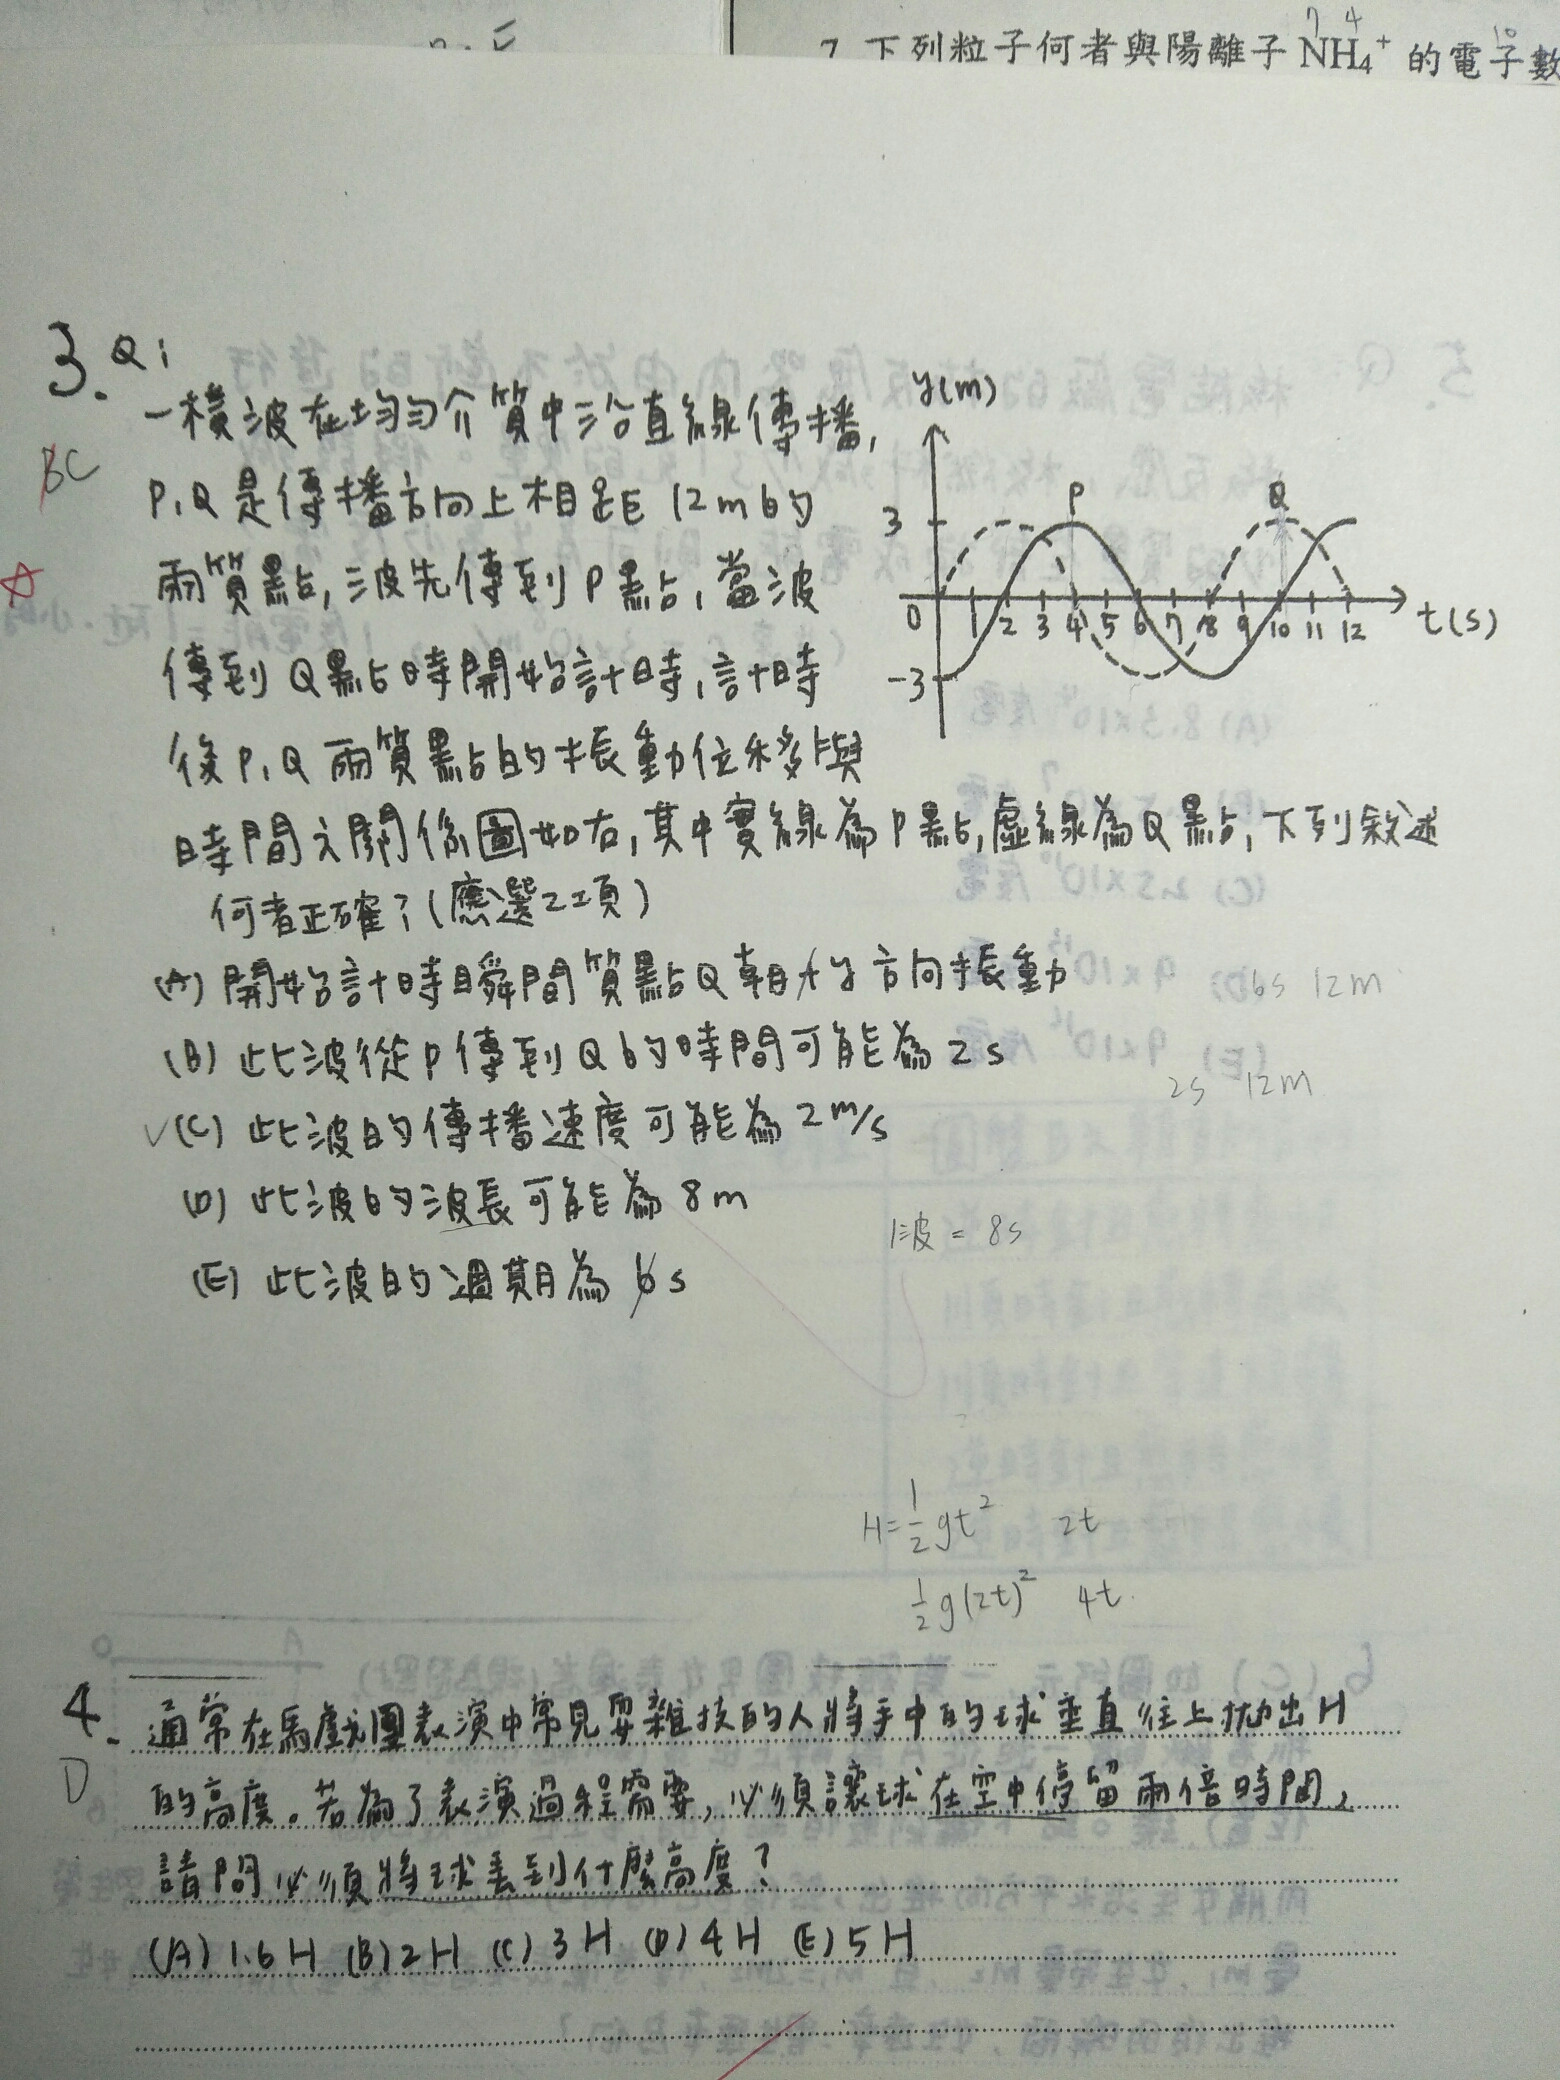 7 下列粒子何者與陽離子 NH₄⁺ 的電子數
7 4
10
3. Q:
一橫波在均勻介質中沿直線傳播,
BC
P,Q是傳播方向上相距12m的
兩質點,波先傳到P點,當波
傳到Q點時開始計時,計時
後P,Q兩質點的振動位移與
時間之關係圖如右,其中實線為P點,虛線為Q點,下列敘述
何者正確?(應選2項)
y(m)
P
Q
3
0 1 2 3 4 5 6 7 8 9 10 11 12 t(s)
-3
(A) 開始計時瞬間質點Q朝+y方向振動
6s 12m
(B) 此波從P傳到Q的時間可能為2s
2s 12m
✓(C) 此波的傳播速度可能為2m/s
(D) 此波的波長可能為8m
1波 = 8s
(E) 此波的週期為6s
H=½gt² 2t
½g(2t)² 4t
4. 通常在馬戲團表演中常見耍雜技的人將手中的球垂直往上拋出H
D
的高度。若為了表演過程需要,必須讓球在空中停留兩倍時間,
請問必須將球丟到什麼高度?
(A) 1.6H (B) 2H (C) 3H (D) 4H (E) 5H